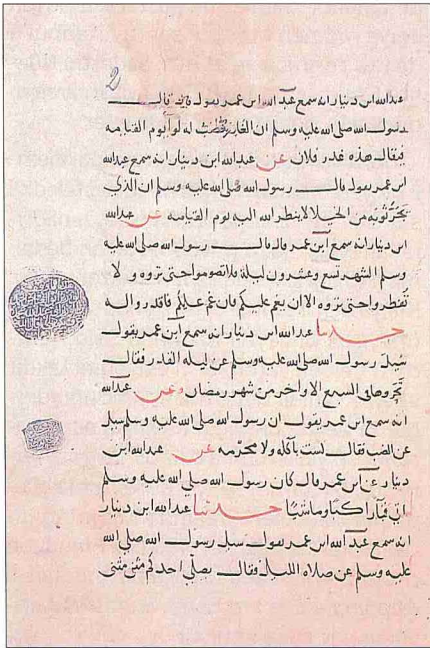 2
عبد الله ابن دينار انه سمع عبد الله ابن عمر يقول قال
رسول الله صلى الله عليه وسلم ان الغادر ينصب له لوآ يوم القيامه
فيقال هذه غدر فلان عن عبد الله ابن دينار انه سمع عبد الله
ابن عمر يقول قال رسول الله صلى الله عليه وسلم ان الذي
يجر ثوبه من الخيلا لا ينظر الله اليه يوم القيامه عن عبد الله
ابن دينار انه سمع ابن عمر قال قال رسول الله صلى الله عليه
وسلم الشهر تسع وعشرون ليلة فلا تصوموا حتى تروه و لا
تفطروا حتى تروه الا ان يغم عليكم فان غم عليكم فاقدروا له
حدثنا عبد الله ابن دينار انه سمع ابن عمر يقول
سيل رسول الله صلى الله عليه وسلم عن ليله القدر فقال
تحروها في السبع الاواخر من شهر رمضان وعن عبد الله
انه سمع ابن عمر يقول ان رسول الله صلى الله عليه وسلم سيل
عن الضب فقال لست باكله ولا محرمه عن عبد الله ابن
دينار عن ابن عمر قال كان رسول الله صلى الله عليه وسلم
ياتي قبآ راكبا وماشيا حدثنا عبد الله ابن دينار
انه سمع عبد الله ابن عمر يقول سيل رسول الله صلى الله
عليه وسلم عن صلاه الليل فقال يصلي احدكم مثنى مثنى